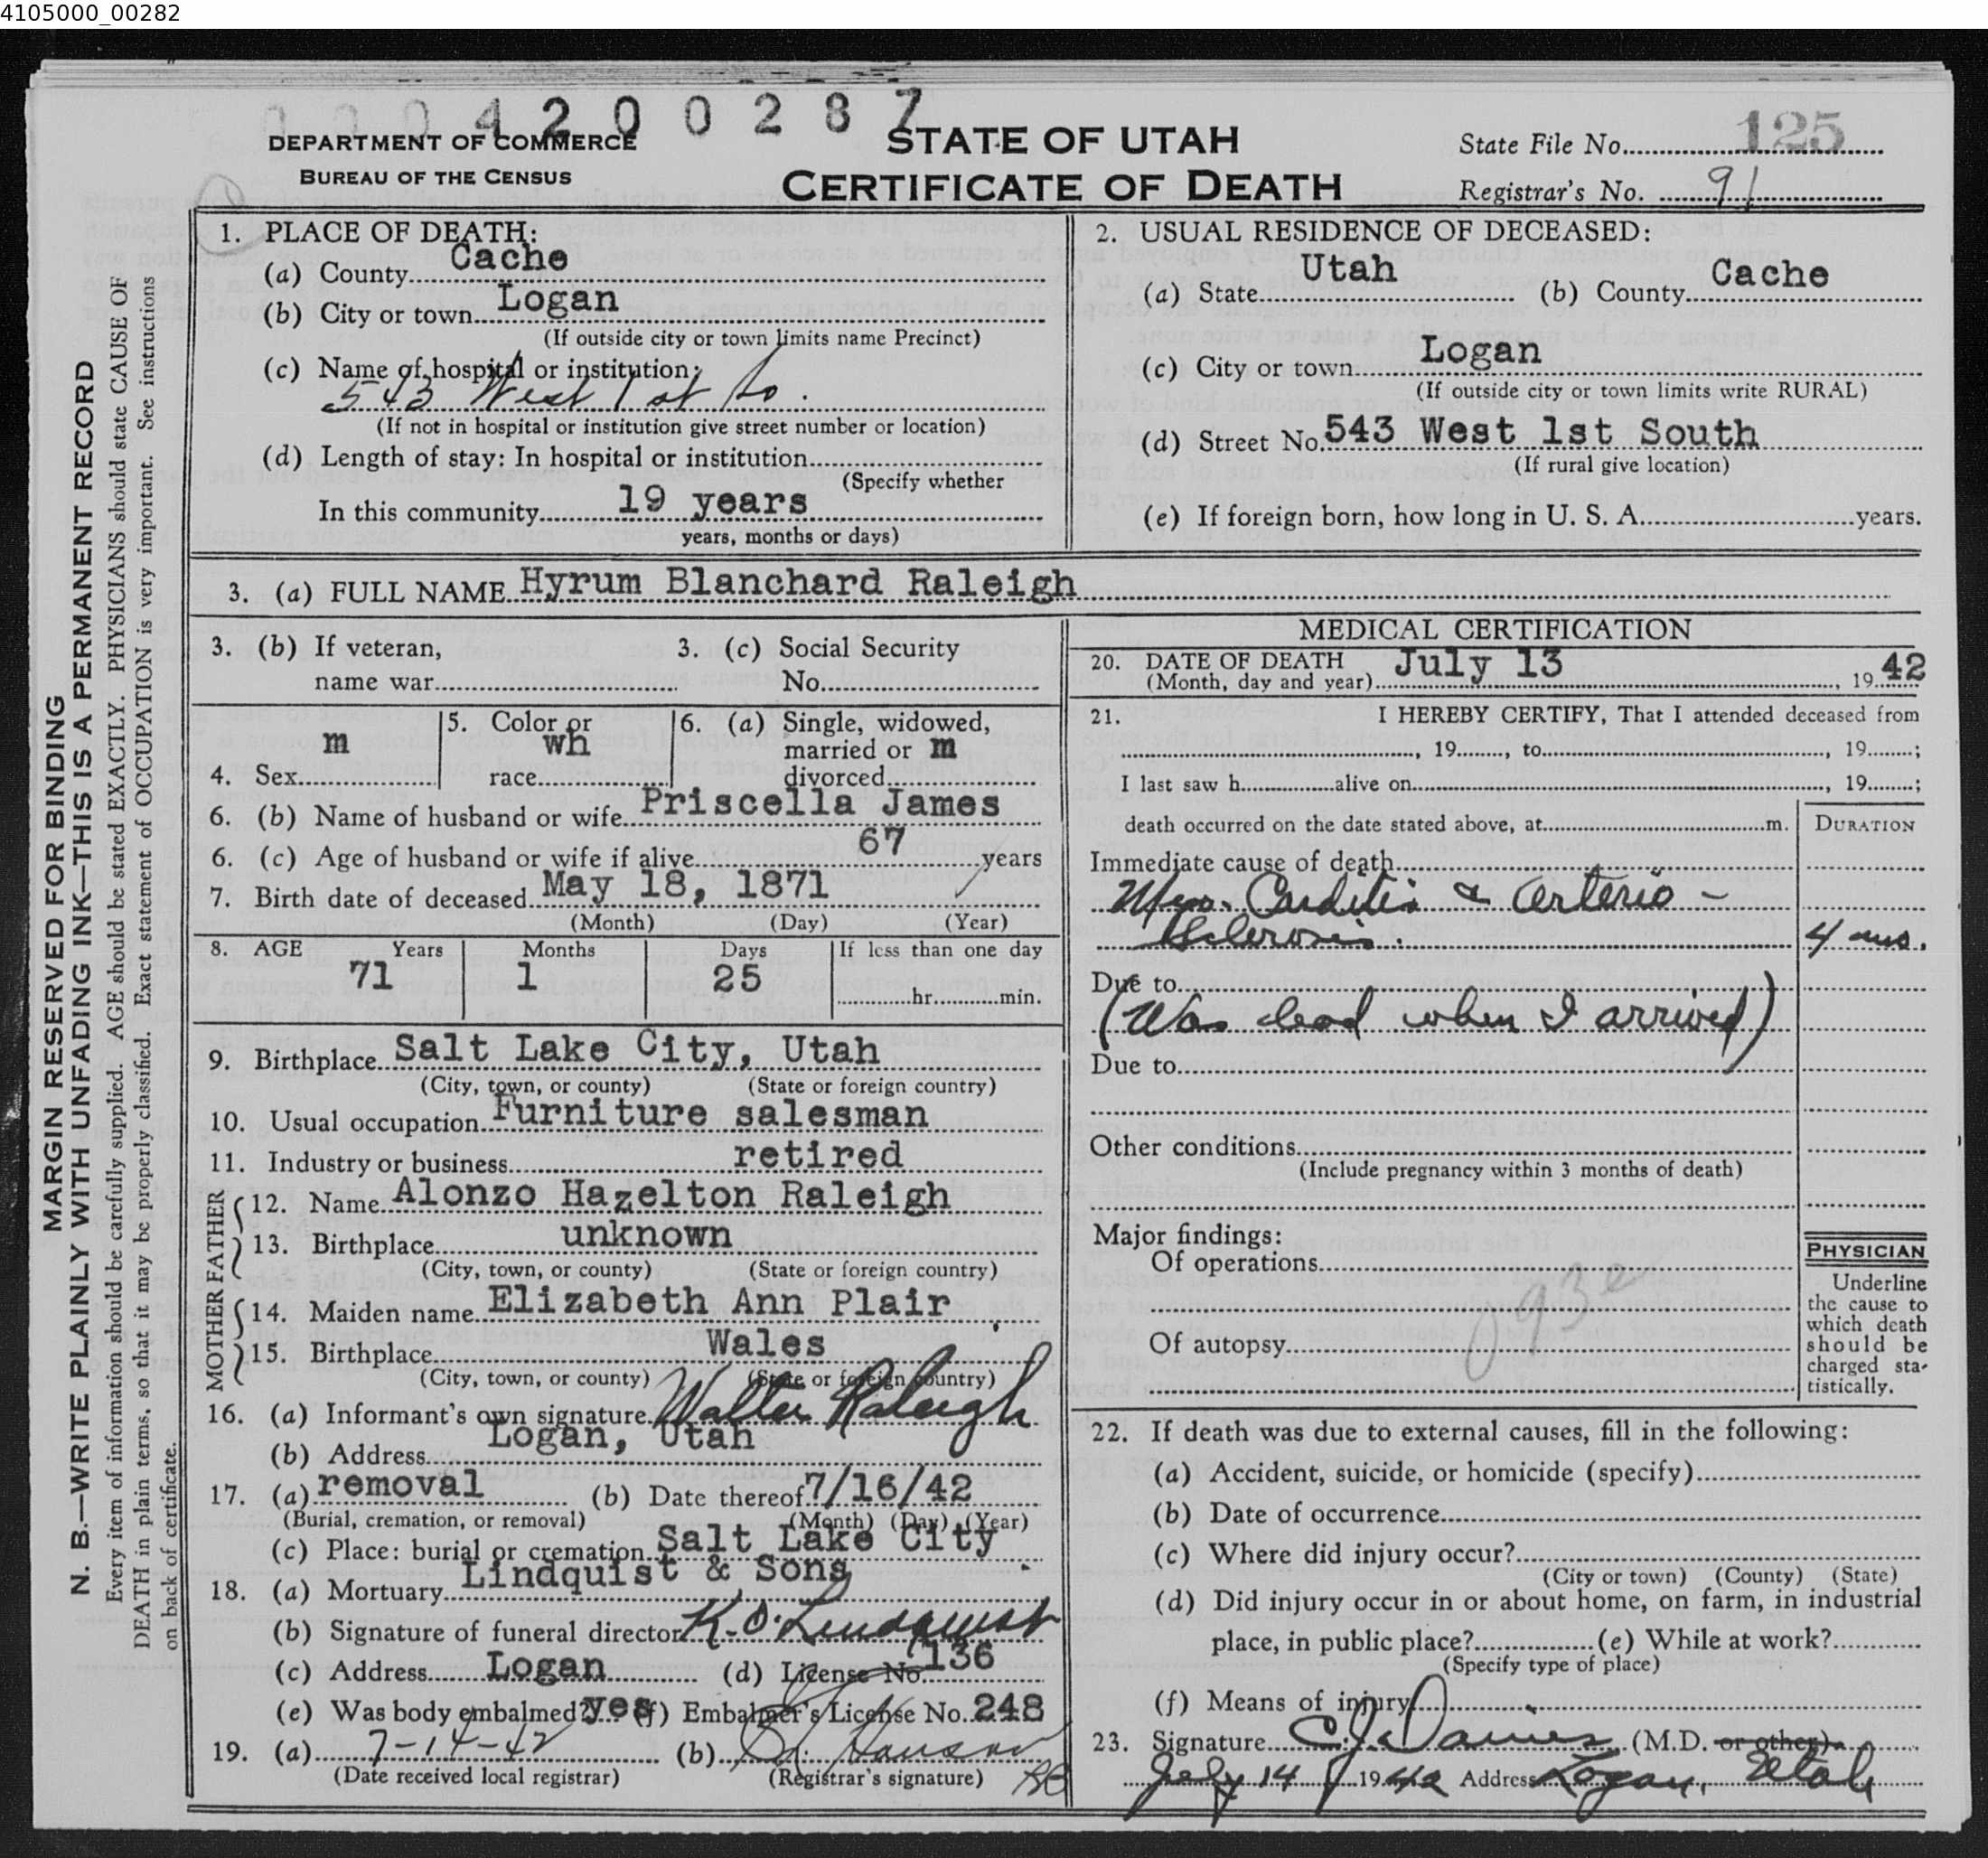 4105000_00282
0004200287
DEPARTMENT OF COMMERCE
BUREAU OF THE CENSUS
STATE OF UTAH
CERTIFICATE OF DEATH
State File No. 125
Registrar's No. 91
MARGIN RESERVED FOR BINDING
N. B.—WRITE PLAINLY WITH UNFADING INK—THIS IS A PERMANENT RECORD
Every item of information should be carefully supplied. AGE should be stated EXACTLY. PHYSICIANS should state CAUSE OF
DEATH in plain terms, so that it may be properly classified. Exact statement of OCCUPATION is very important. See instructions
on back of certificate.
1. PLACE OF DEATH:
(a) County Cache
(b) City or town Logan
(If outside city or town limits name Precinct)
(c) Name of hospital or institution:
543 West 1st So.
(If not in hospital or institution give street number or location)
(d) Length of stay: In hospital or institution
(Specify whether
In this community 19 years
years, months or days)
2. USUAL RESIDENCE OF DECEASED:
(a) State Utah (b) County Cache
(c) City or town Logan
(If outside city or town limits write RURAL)
(d) Street No. 543 West 1st South
(If rural give location)
(e) If foreign born, how long in U. S. A. years.
3. (a) FULL NAME Hyrum Blanchard Raleigh
3. (b) If veteran, name war
3. (c) Social Security No.
4. Sex m
5. Color or race wh
6. (a) Single, widowed, married or divorced m
6. (b) Name of husband or wife Priscella James
6. (c) Age of husband or wife if alive 67 years
7. Birth date of deceased May 18, 1871
(Month) (Day) (Year)
8. AGE Years Months Days If less than one day
71 1 25 hr. min.
9. Birthplace Salt Lake City, Utah
(City, town, or county) (State or foreign country)
10. Usual occupation Furniture salesman
11. Industry or business retired
FATHER
12. Name Alonzo Hazelton Raleigh
13. Birthplace unknown
(City, town, or county) (State or foreign country)
MOTHER
14. Maiden name Elizabeth Ann Plair
15. Birthplace Wales
(City, town, or county) (State or foreign country)
16. (a) Informant's own signature Walter Raleigh
(b) Address Logan, Utah
17. (a) removal (b) Date thereof 7/16/42
(Burial, cremation, or removal) (Month) (Day) (Year)
(c) Place: burial or cremation Salt Lake City
18. (a) Mortuary Lindquist & Sons
(b) Signature of funeral director K. O. Lindquist
(c) Address Logan (d) License No. 136
(e) Was body embalmed? yes (f) Embalmer's License No. 248
19. (a) 7-14-42 (b) Hanson
(Date received local registrar) (Registrar's signature)
MEDICAL CERTIFICATION
20. DATE OF DEATH July 13
(Month, day and year) , 19 42
21. I HEREBY CERTIFY, That I attended deceased from
, 19 , to , 19 ;
I last saw h alive on , 19 ;
death occurred on the date stated above, at m.
DURATION
Immediate cause of death
Myo. Carditis & Arterio-
Sclerosis. 4 mo.
Due to
(Was dead when I arrived)
Due to
Other conditions
(Include pregnancy within 3 months of death)
Major findings:
Of operations
Of autopsy
PHYSICIAN
Underline
the cause to
which death
should be
charged sta-
tistically.
22. If death was due to external causes, fill in the following:
(a) Accident, suicide, or homicide (specify)
(b) Date of occurrence
(c) Where did injury occur?
(City or town) (County) (State)
(d) Did injury occur in or about home, on farm, in industrial
place, in public place? (e) While at work?
(Specify type of place)
(f) Means of injury
23. Signature C. J. Daines (M.D. or other)
July 14 1942 Address Logan, Utah